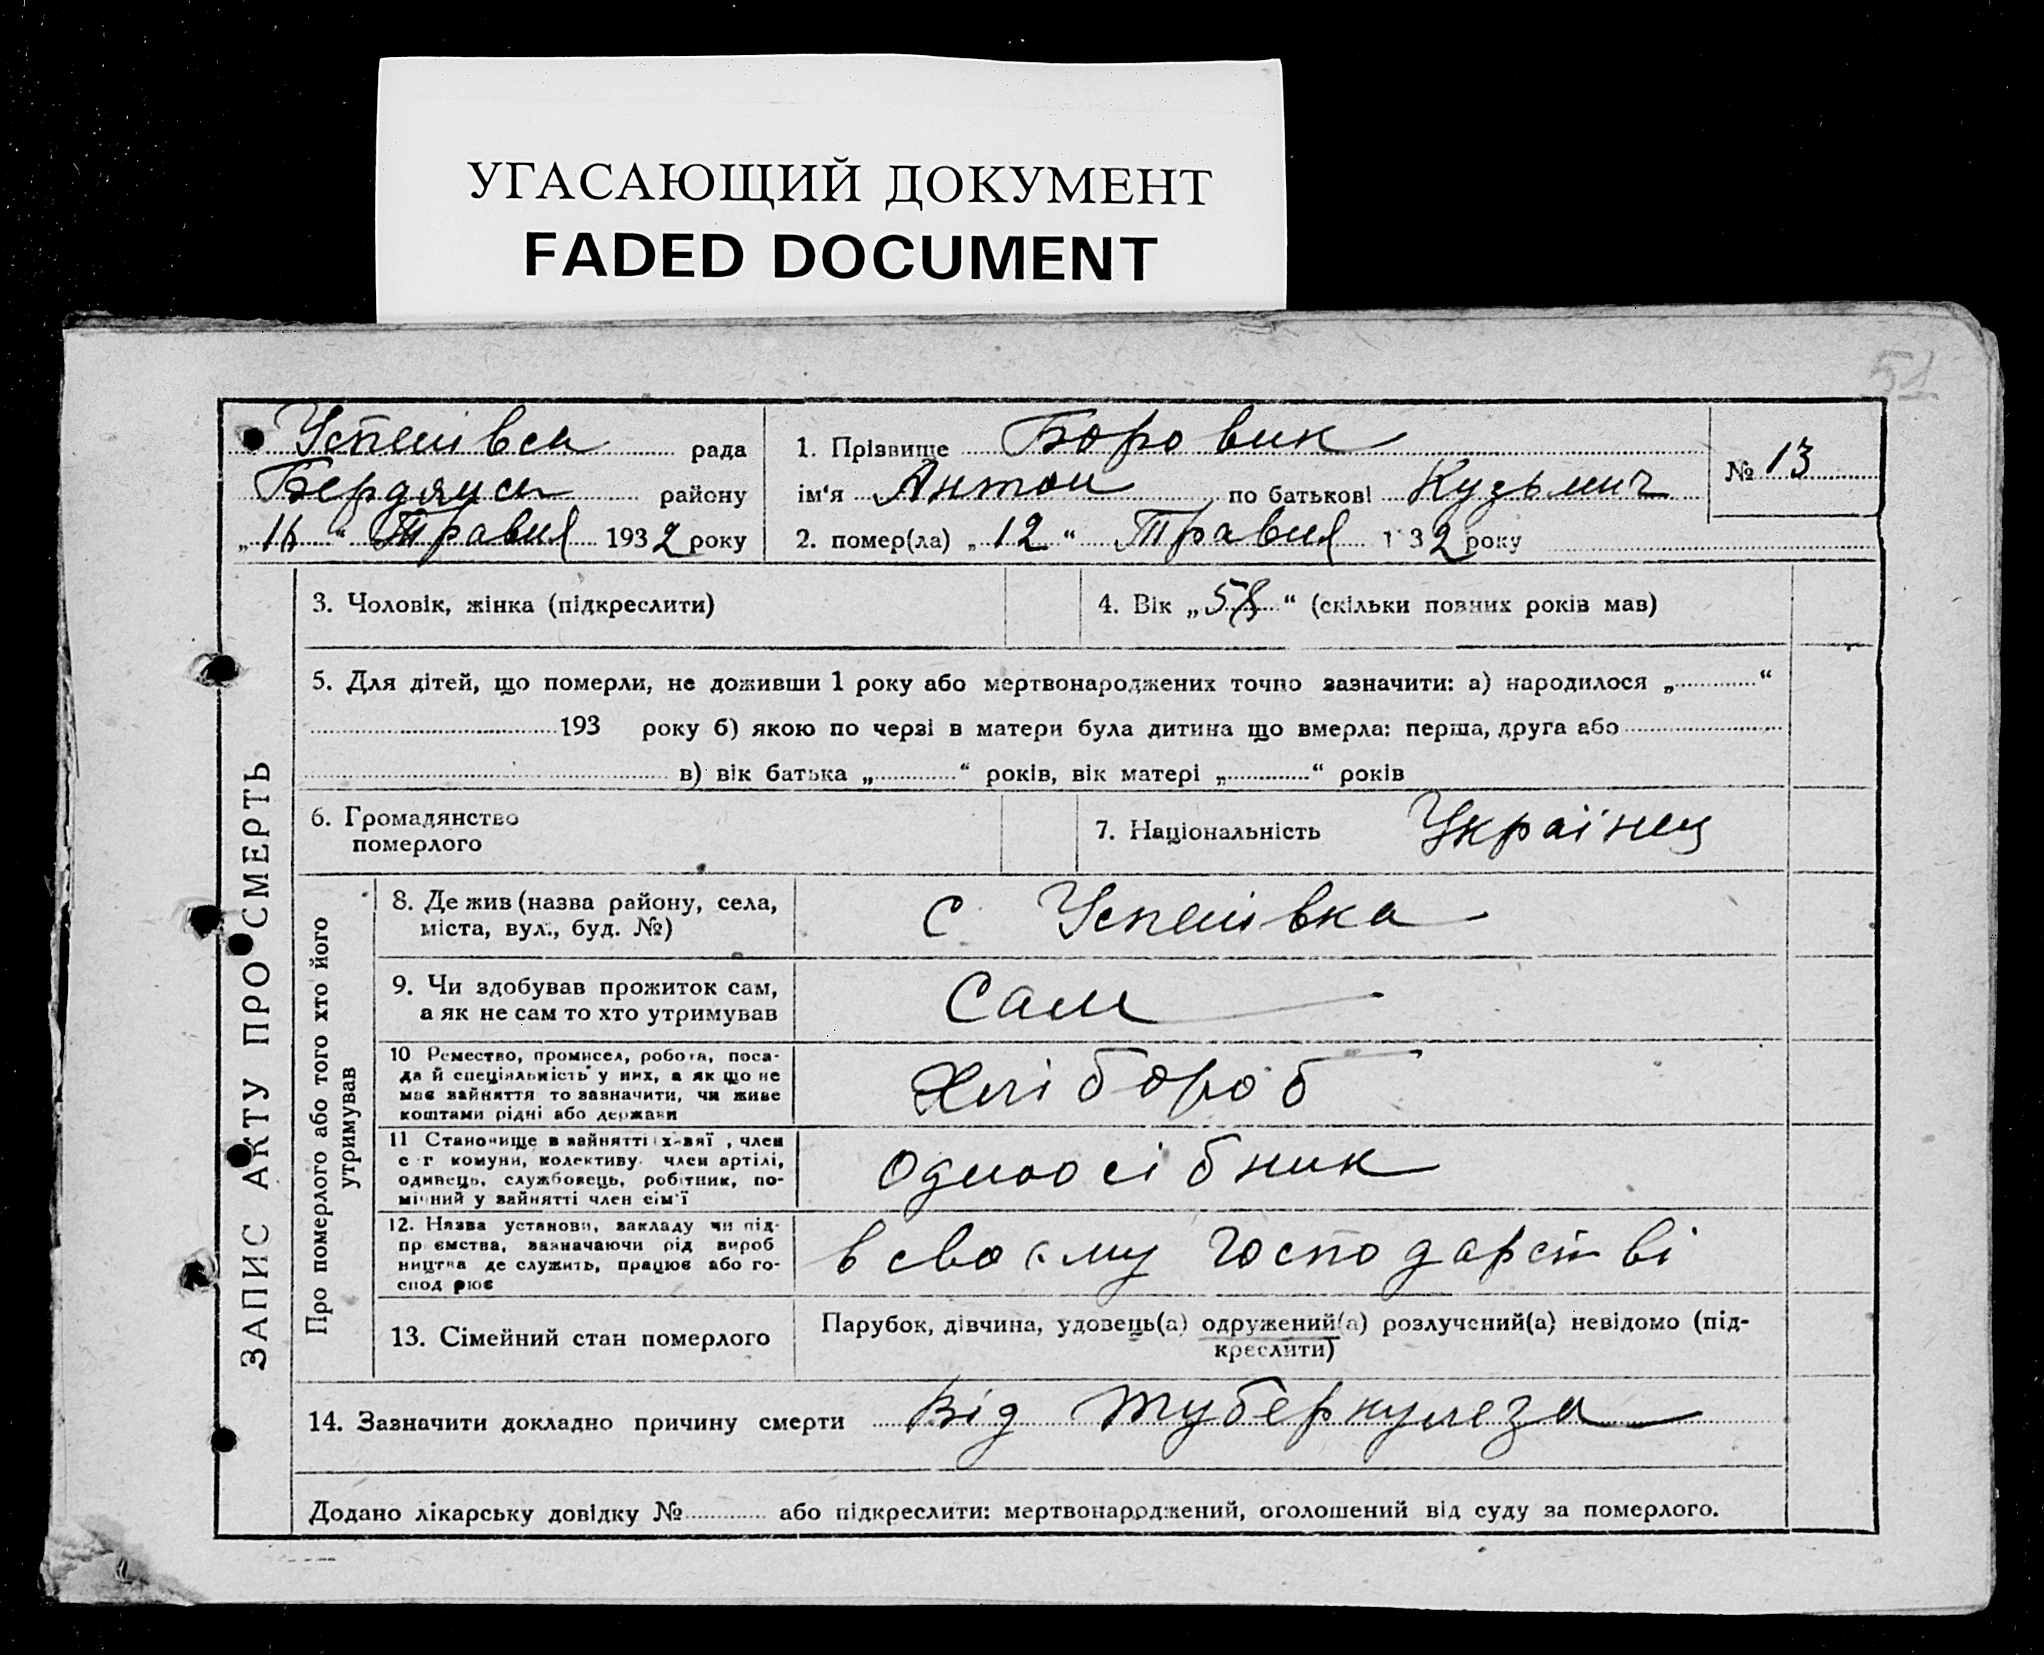 УГАСАЮЩИЙ ДОКУМЕНТ
FADED DOCUMENT
51
Успенівсь рада
Бердянсь району
„ “ Травня 1932 року
1. Прізвище Боровик
ім‘я Антон по батькові Кузьмич
№ 13
2. помер(ла) „12“ Травня 1 32 року
ЗАПИС АКТУ ПРО СМЕРТЬ
3. Чоловік, жінка (підкреслити)
4. Вік „58“ (скільки повних років мав)
5. Для дітей, що померли, не доживши 1 року або мертвонароджених точно зазначити: а) народилося „ “
193 року б) якою по черзі в матери була дитина що вмерла: перша, друга або
в) вік батька „ “ років, вік матері „ “ років
6. Громадянство
померлого
7. Національність Українец
Про померлого або того хто його
утримував
8. Де жив (назва району, села,
міста, вул., буд. №)
с Успенівка
9. Чи здобував прожиток сам,
а як не сам то хто утримував
Сам
10 Ремество, промисел, робота, поса-
да й спеціяльність у них, а як що не
має зайняття то зазначити, чи живе
коштами рідні або держави
Хлібороб
11 Становище в зайнятті х-вяї, член
с г комуни, колективу член артілі,
одинець, службовець, робітник, по-
мічний у зайнятті член сім'ї
Одноосібник
12. Назва установи, закладу чи під-
пр ємства, зазначаючи рід вироб
ництва де служить, працює або го-
спод рює
в своєму господарстві
13. Сімейний стан померлого
Парубок, дівчина, удовець(а) одружений(а) розлучений(а) невідомо (під-
креслити)
14. Зазначити докладно причину смерти Від туберкулеза
Додано лікарську довідку № або підкреслити: мертвонароджений, оголошений від суду за померлого.